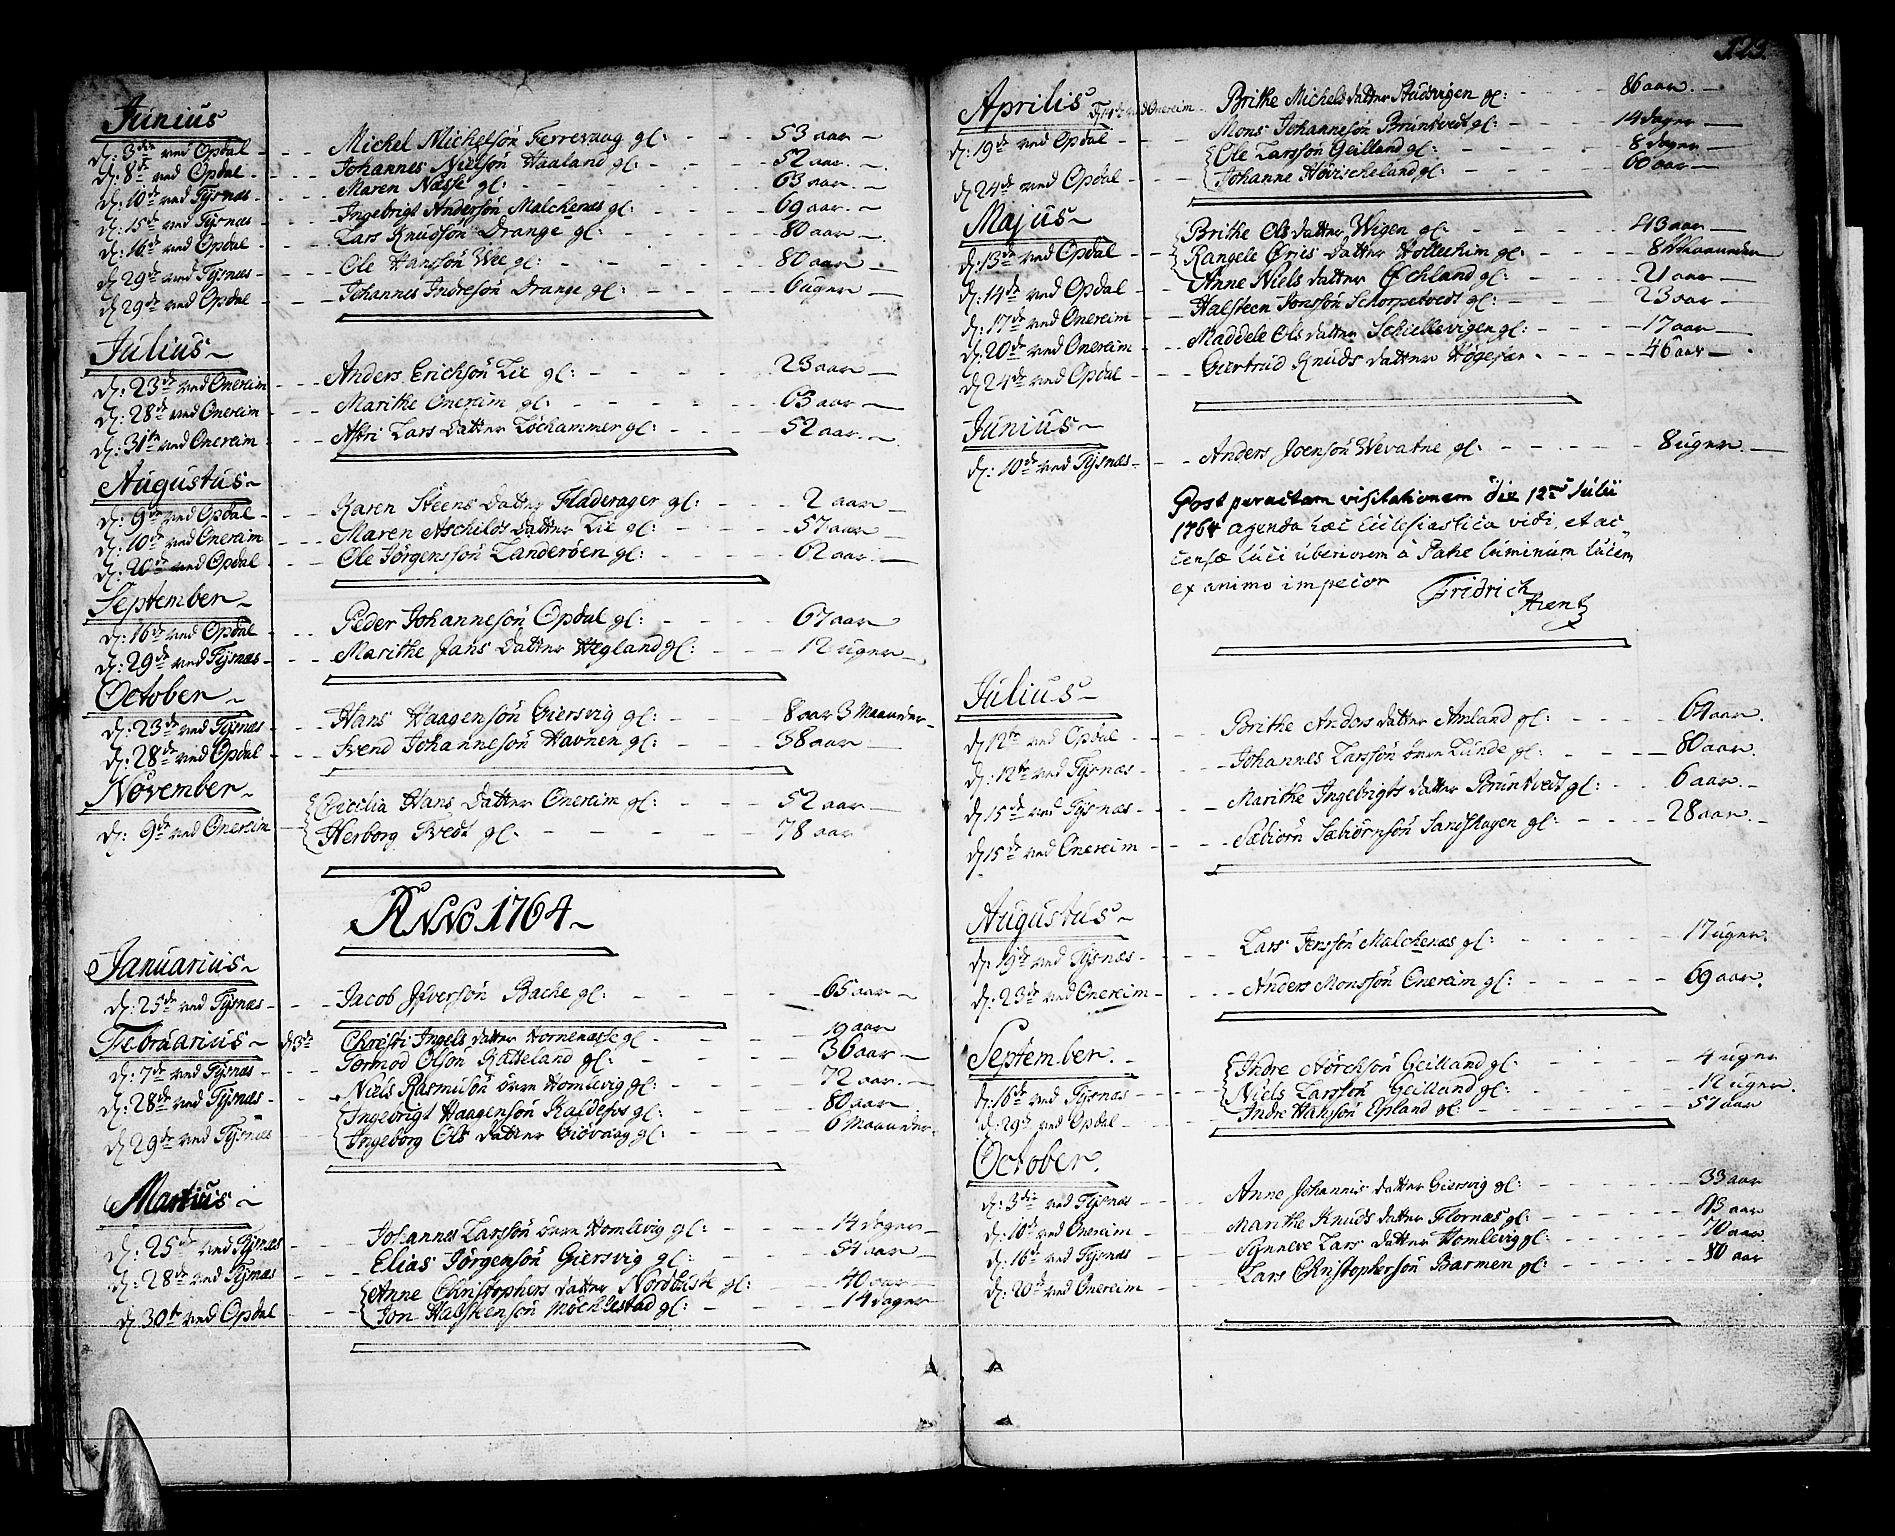 Junius
d: 3die ved Opdal - - - Michel Michelsön Ferrevaag gl: - - - 53 aar
d: 8de ved Opdal - - - Johannes Nielsön Haaland gl: - - - 52 aar
d: 10de ved Tÿsnæs - - - Maren Næsse gl: - - - 63 aar
d: 15de ved Tÿsnæs - - - Ingebrigt Andersön Malchenæs gl: - - - 69 aar
d: 16de ved Opdal - - - Lars Knudsön Drange gl: - - - 80 aar
d: 29de ved Tÿsnæs - - - Ole Hanssön Wee gl: - - - 80 aar
d: 29de ved Opdal - - - Johannes Indresön Drange gl: - - - 6 uger
Julius
d: 23de ved Onereim - - - Anders Ericksön Lie gl: - - - 23 aar
d: 28de ved Onereim - - - Marithe Onereim gl: - - - 63 aar
d: 31te ved Onereim - - - Astri Lars datter Löchammer gl: - - - 52 aar
Augustus
d: 9de ved Opdal - - - Karen Steens datter Fladerager gl: - - - 2 aar
d: 10de ved Onereim - - - Maren Aschilds datter Lie gl: - - - 57 aar
d: 20de ved Opdal - - - Ole Jörgenssön Landeröen gl: - - - 62 aar
September
d: 16de ved Opdal - - - Peder Johannesön Opdal gl: - - - 67 aar
d: 29de ved Tÿsnæs - - - Marithe Jans datter Hegland gl: - - - 12 uger
October
d: 23de ved Tÿsnæs - - - Hans Haagensön Giersvig gl: - - - 8 aar 3 Maaneder
d: 28de ved Opdal - - - Svend Johannesön Havnen gl: - - - 38 aar
November
d: 9de ved Onereim - Cicilia Hans datter Onereim gl: - - - 52 aar
Herborg Tvedt gl: - - - 78 aar
ANNO 1764
Januarius
d: 25de ved Tÿsnæs - - - Jacob Iversön Bache gl: - - - 65 aar
Februarius d 3de Christi Ingels datter Hornenæsse gl - - - 19 aar
d: 7de ved Tÿsnæs - - - Tormod Olsön Räteland gl: - - - 36 aar
d: 28de ved Tÿsnæs - - - Niels Rasmusön övre Homlevig gl: - - - 72 aar
d 29de ved Tÿsnæs Ingebrigt Haagensön Kaldefos gl: - - - 80 aar
Ingeborg Ols datter Giövaag gl: - - - 6 Maaneder
Martius
d: 25de ved Tÿsnæs - Johannes Larssön övre Homlevig gl: - - - 14 dager
d: 28de ved Tÿsnæs - Elias Jörgensön Giersvig gl: - - - 54 aar
d: 30te ved Opdal - Anne Christophers datter Nordhust gl: - - - 40 aar
Jon Halsteensön Möchlestad gl: - - - 14 dager
Aprilis ved Onereim - Brithe Michels datter Stuesvigen gl: - - - 86 aar
d: 19de ved Opdal - - - Mons Johannesön Bruntvedt gl: - - - 14 dager
d 24de ved Opdal - - - Ole Larssön Geilland gl: - - - 8 dager
Johanne Hövischeland gl: - - - 60 aar
Majus
d: 13de ved Opdal - - - Brithe Ols datter Wigen gl: - - - 43 aar
Rangele Öries datter Hollechim gl: - - - 8 Maaneder
d: 14de ved Opdal - - - Anne Niels datter Öchland gl: - - - 21 aar
d: 17de ved Onereim - - Halsteen Jonssön Schorpetvedt gl: - - - 23 aar
d: 20de ved Onereim - - Maddele Ols datter Schiellevigen gl: - - - 17 aar
d 24de ved Opdal - - - Giertrud Knuds datter Högefar - - - 46 aar
Junius
d: 10de ved Tÿsnæs - - Anders Joensön Wevatne gl: - - - 8 uger
Post peractam visitationem die 12me Julii
1764 agenda hæc Ecclesiastica vidi, et ac-
censæ luci uberiorem a Patre luminum lucem
ex animo imprecor Fridrich
Arentz
Julius
d 12te ved Opdal - - - Brithe Anders datter Amland gl: - - - 64 aar
d: 12te ved Tÿsnæs - - - Johannes Larssön övre Lünde gl: - - - 80 aar
d 15de ved Tÿsnæs - - - Marithe Ingebrigts datter Bruntvedt gl: - - - 6 aar
d 15de ved Onereim - - - Sæbiörn Sæbiörnsön Sandshagen gl: - - - 28 aar
Augustus
d: 19de ved Tÿsnæs - - - Lars Jenssön Malchenæs gl: - - - 17 uger
d: 23de ved Onereim - - - Anders Monssön Onereim gl: - - - 69 aar
September
d: 16de ved Tÿsnæs - - - Indre Nörchsön Geilland gl: - - - 4 uger
Niels Larssön Geilland gl: - - - 12 uger
d: 29de ved Opdal - - - Indre Hanssön Epland gl: - - - 57 aar
October
d: 3die ved Tÿsnæs - - - Anne Johannis datter Giersvig gl: - - - 33 aar
d: 10de ved Onereim - - - Marithe Knuds datter Flornæs gl: - - - 93 aar
d: 16de ved Tÿsnæs - - - Synneve Lars datter Homlevig gl: - - - 70 aar
d: 20de ved Onereim - - - Lars Christophersön Barmen gl: - - - 80 aar